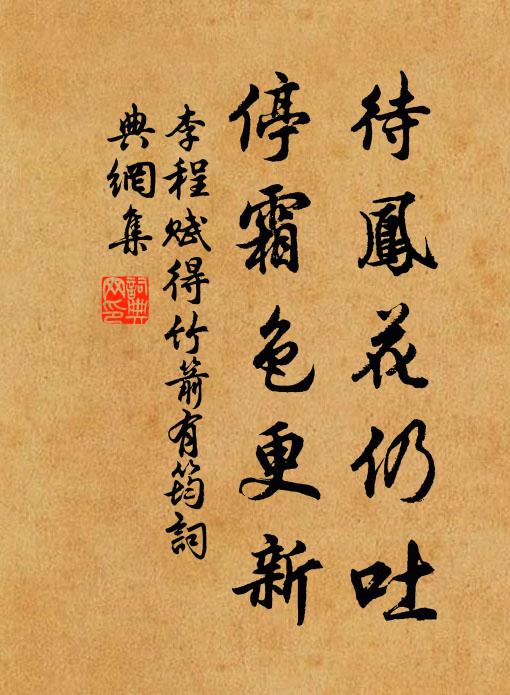 待鳳花仍吐
停霜色更新
李程賦得竹箭有筠詞
典網集
詞典
网印